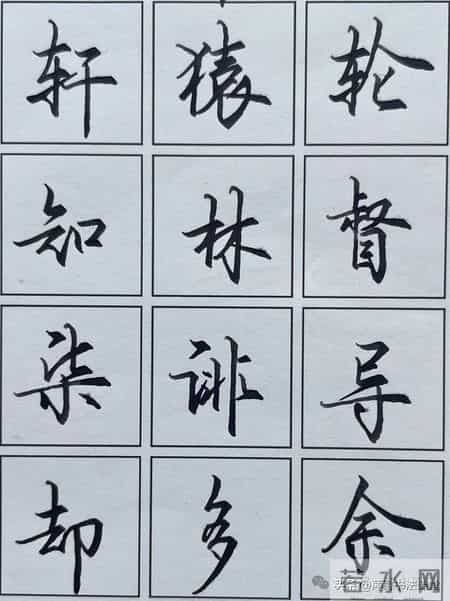 轩猿轮
知林督
柒诽导
却多余